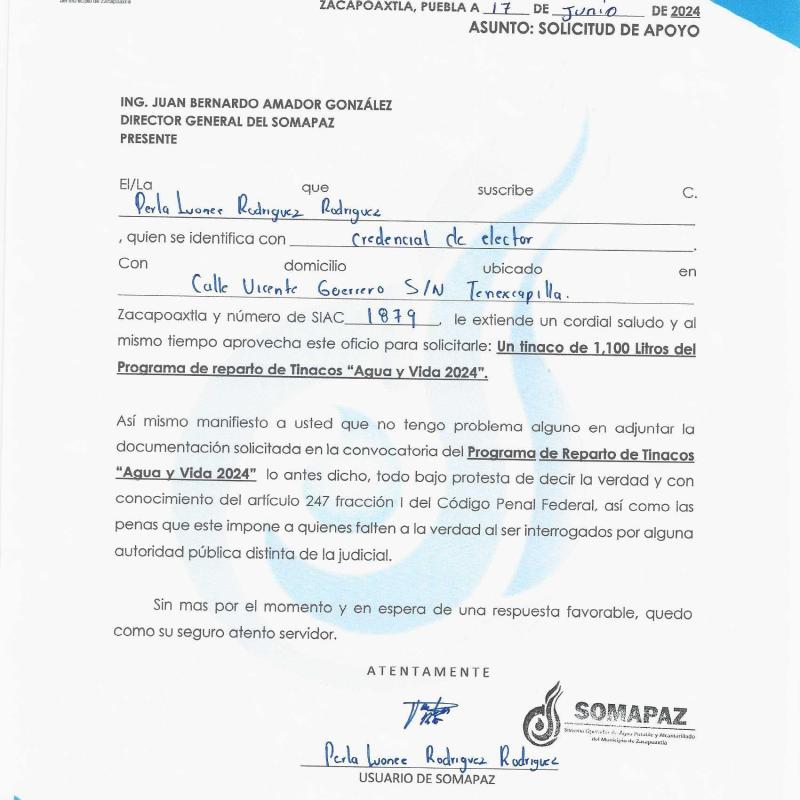 ZACAPOAXTLA, PUEBLA A 17 DE Junio DE 2024
ASUNTO: SOLICITUD DE APOYO
ING. JUAN BERNARDO AMADOR GONZÁLEZ
DIRECTOR GENERAL DEL SOMAPAZ
PRESENTE
El/La que suscribe C.
Perla Ivonee Rodriguez Rodriguez
, quien se identifica con credencial de elector.
Con domicilio ubicado en
Calle Vicente Guerrero S/N Tenexcapilla.
Zacapoaxtla y número de SIAC 1879, le extiende un cordial saludo y al
mismo tiempo aprovecha este oficio para solicitarle: Un tinaco de 1,100 Litros del
Programa de reparto de Tinacos “Agua y Vida 2024”.
Así mismo manifiesto a usted que no tengo problema alguno en adjuntar la
documentación solicitada en la convocatoria del Programa de Reparto de Tinacos
“Agua y Vida 2024” lo antes dicho, todo bajo protesta de decir la verdad y con
conocimiento del artículo 247 fracción I del Código Penal Federal, así como las
penas que este impone a quienes falten a la verdad al ser interrogados por alguna
autoridad pública distinta de la judicial.
Sin mas por el momento y en espera de una respuesta favorable, quedo
como su seguro atento servidor.
ATENTAMENTE
SOMAPAZ
Sistema Operador de Agua Potable y Alcantarillado
del Municipio de Zacapoaxtla
Perla Ivonee Rodriguez Rodriguez
USUARIO DE SOMAPAZ